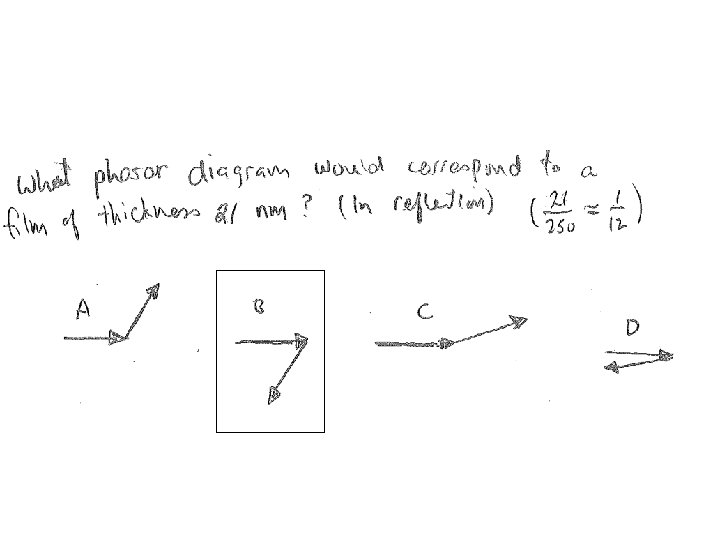 What phasor diagram would correspond to a
film of thickness 21 nm? (In reflection) (21/250 ≈ 1/12)
A
B
C
D